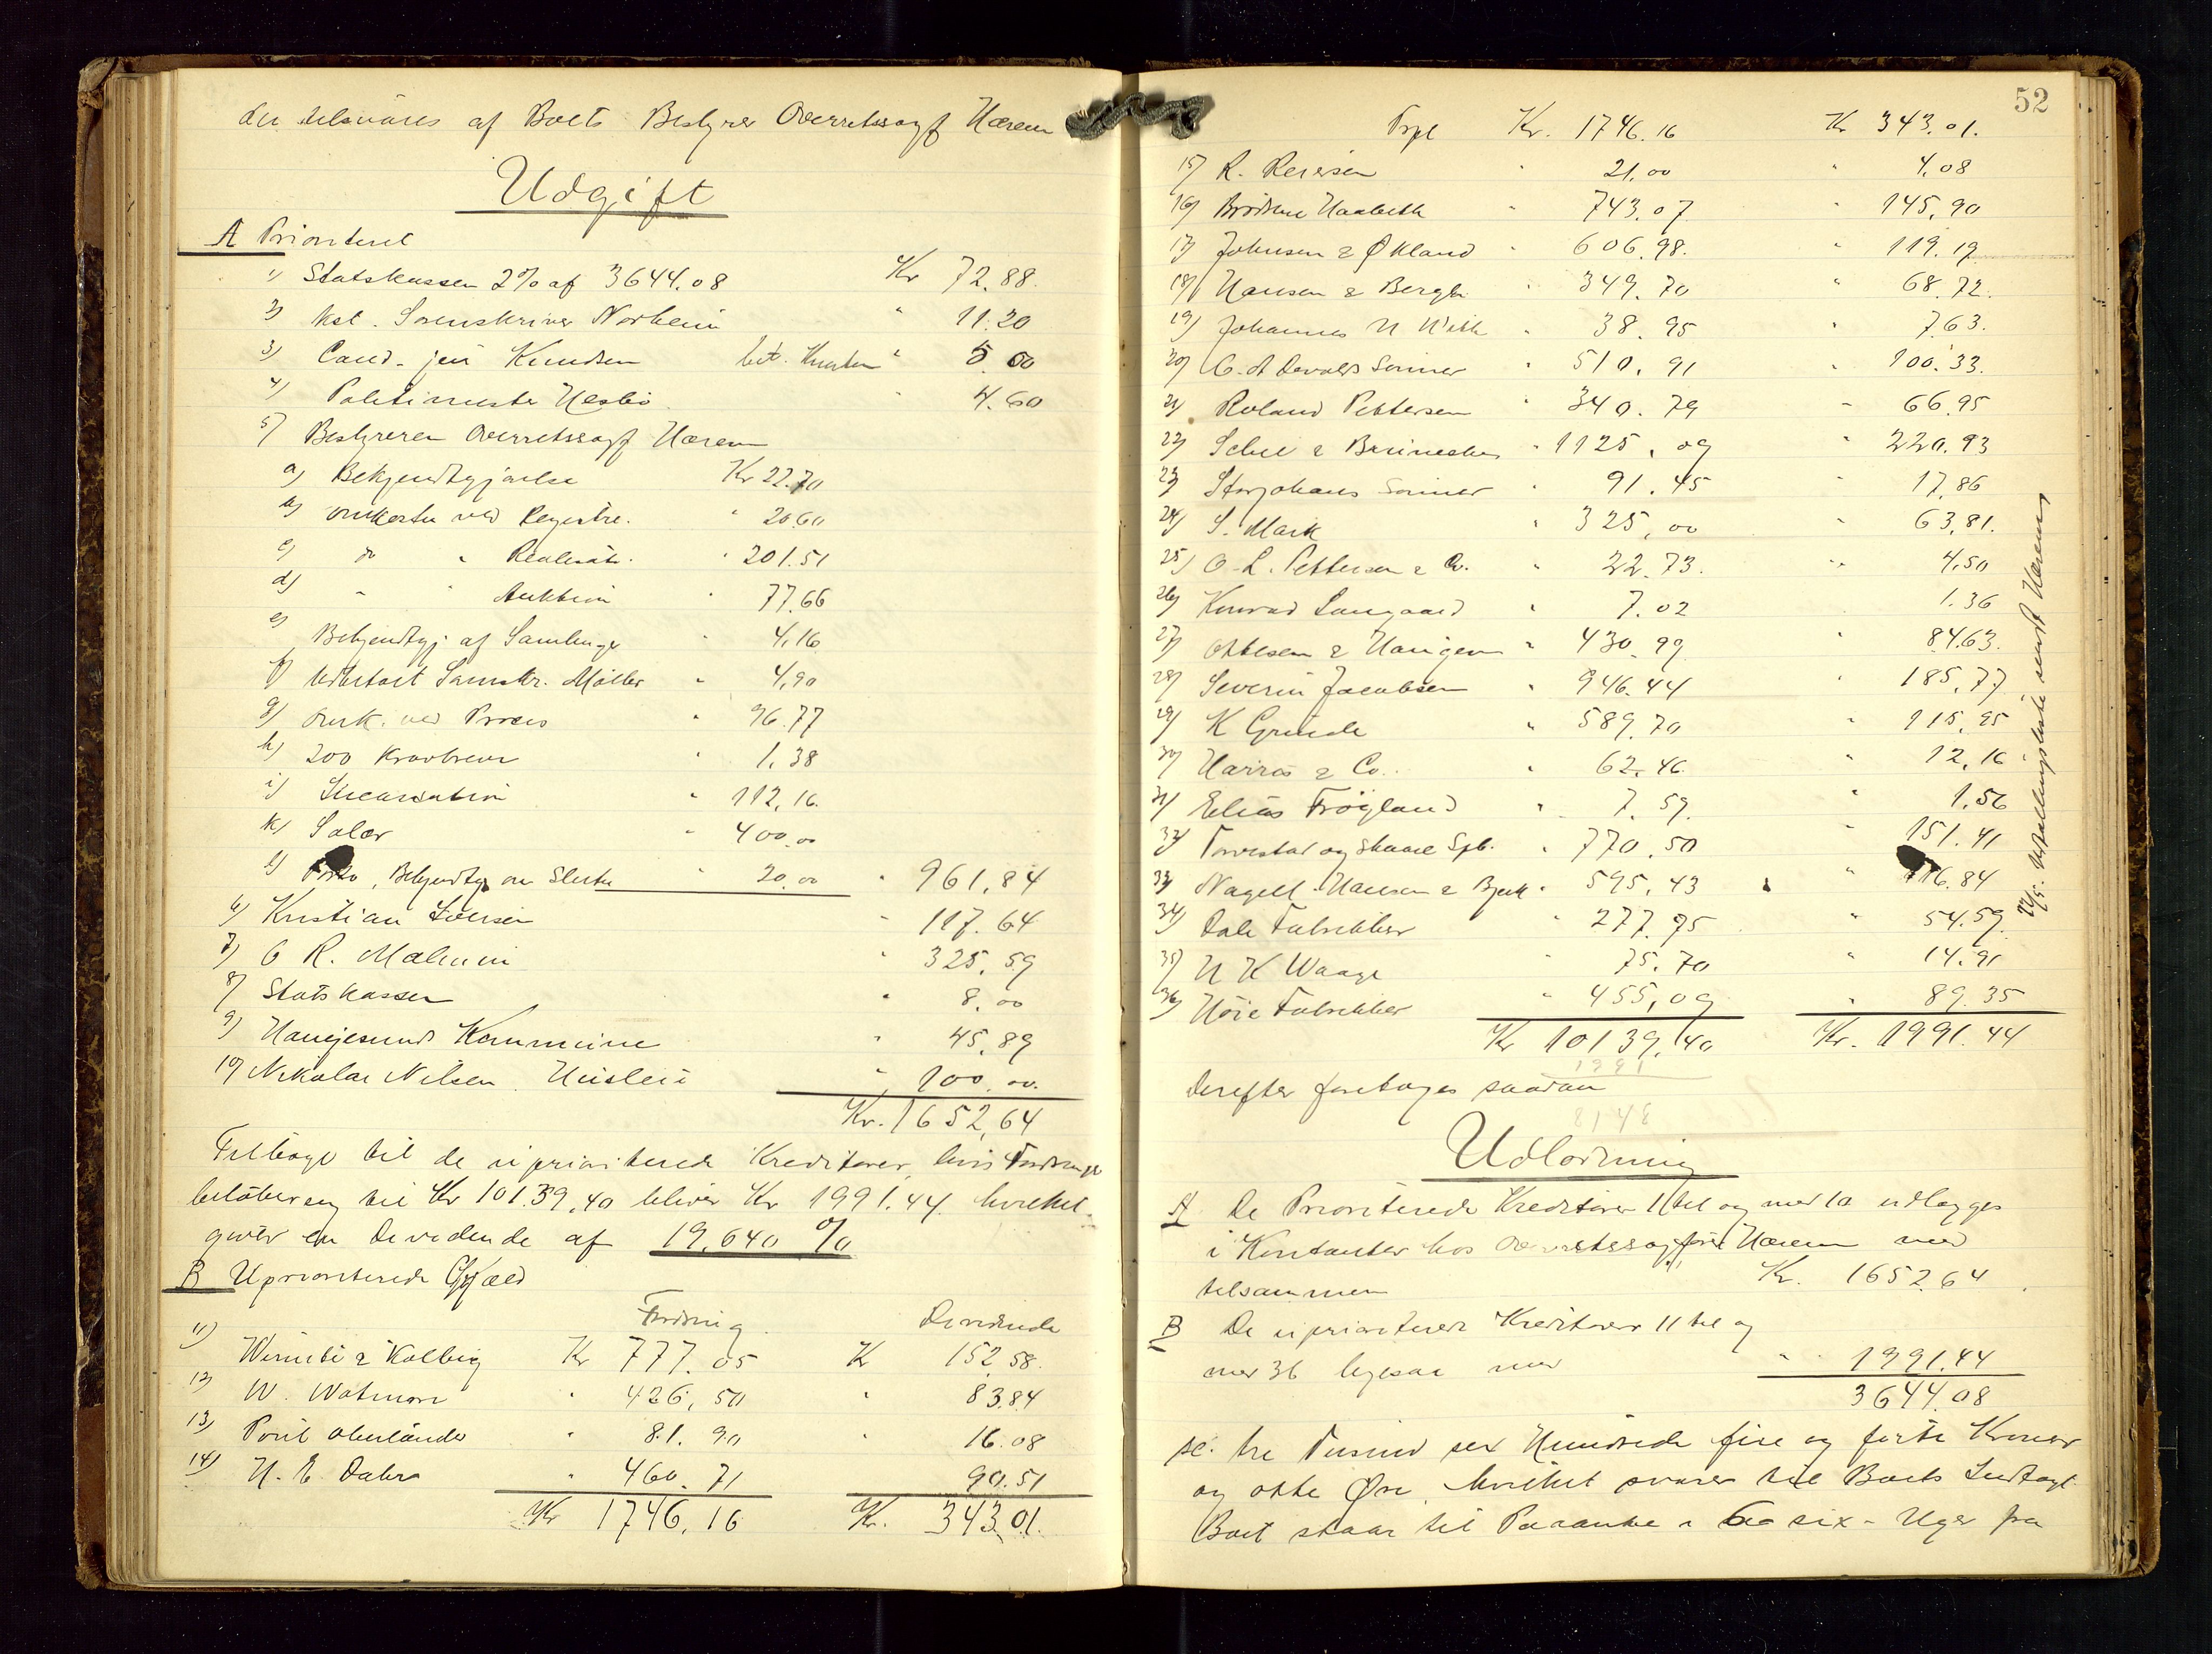 der tilsvares af Boets Bestyrer Overretssagf Hærem
Udgift
A Prioriteret
1) Statskassen 2% af 3644.08 Kr 72.88
2) Kst. Sorenskriver Norheim " 11.20
3) Cand. jur Knudsen " 5.00
4) Politimester Nesbø " 4.60
5) Bestyreren Overretssagf Hærem
a) Bekjendtgjørelse Kr 22.70
b) Omkoster ved Registre. " 20.60
c) do " Realisat. " 201.51
d) " " Auktion " 77.66
e) Bekjendtgj. af Samlinger " 4.16
f) Sornskr. Møller " 4.90
g) Omk. ved Proces " 96.77
h) 200 Kravbreve " 1.38
i) Incassation " 112.16
k) Salær " 400.00
l) Porto, Bekjendtg om Slutn " 20.00 " 961.84
6) Kristian " 117.64
7) O R. Malmin " 325.59
8) Statskassen " 8.00
9) Haugesund Kommune " 45.89
10) Nikolai Nilsen Husleie " 100.00
Kr. 1652,64
Tilbage til de uprioriterede Kreditorer, hvis Fordringer
beløber sig til Kr 10139.40 bliver Kr 1991.44 hvilket
giver en Dividende af 19.640 %
B Uprioriterede Gjæld
Fordring Dividende
11) & Kolbig Kr 777.05 K 152.58
12) W. Watmore " 426,50 " 83.84
13) Poul " 81.90 " 16.08
14) H. E. Dahr " 460.71 90.51
Kr 1746,16 Kr. 343.01.
52
Trpt Kr. 1746.16 Kr 343.01.
15) R. Reiersen " 21.00 " 4.08
16) Brødrene Haabeth " 743.07 " 145,90
17) Johnsen & Økland " 606.98 " 119.19
18) Hansen & Bergh " 349.70 " 68.72
19) Johannes N " 38.95 " 7.63
20) Sønner " 510.91 " 100.33
21) Roland Pettersen " 340.79 " 66.95
22) Schee & " 1125,09 " 220.93
23) Storjohans Sønner " 91.45 " 17,86
24) S. Mark " 325,00 " 63,81
25) O. L. Pettersen & Co. " 22.73 " 4,50
26) Konrad Langaard " 7.02 1.36
27) Ottesen & " 430.99 " 84.63
28) Severin Jacobsen " 946.44 " 185,77
29) K Grinde " 589.70 " 115,95
30) & Co. " 62.46 " 12,16
31) Elias Frøyland " 7.59 " 1,56
32) Torvestad og Skaare Spb. " 770.50 " 151.41
33) Nagell Hansen & " 595,43 " 116.84
34) Dale Fabrikker " 277.95 " 54.59
35) N K Waage " 75.70 " 14.91
36) Høie Fabrikker " 455,09 " 89.35
Kr 10139,40 Kr. 1991.44
1991
Derefter foretages saadan
8148
Udlodning
A De Prioriterede Kreditorer 1 til og med 10 udlægges
i Kontanter hos Overretssagfører Hærem med
tilsammen Kr. 1652.64
B De uprioriterede Kreditorer 11 til og
med 36 ligesaa med " 1991.44
3644.08
sc. tre Tusind sex Hundrede fire og førti Kroner
og otte Øre, hvilket svarer til Boets Indtægt.
Boet staar til Paaanke i 6 – six – Uger fra